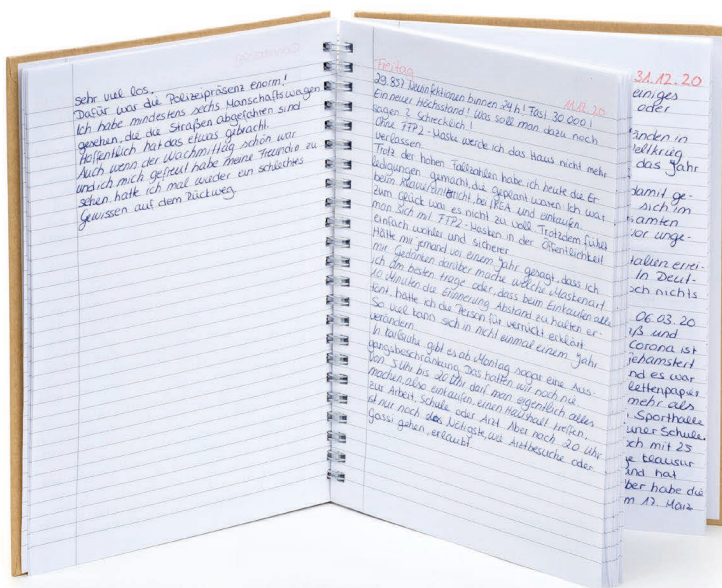 sehr viel los.
Dafür war die Polizeipräsenz enorm!
Ich habe mindestens sechs Manschaftswagen
gesehen, die die Straßen abgefahren sind
Hoffentlich hat das etwas gebracht.
Auch wenn der Nachmittag schön war
und ich mich gefreut habe meine Freundin zu
sehen, hatte ich mal wieder ein schlechtes
Gewissen auf dem Rückweg.
Freitag
11.12.20
29.857 Neuinfektionen binnen 24h! Fast 30.000!
Ein neuer Höchststand! Was soll man dazu noch
sagen? Schrecklich!
Ohne FFP2-Maske werde ich das Haus nicht mehr
verlassen.
Trotz der hohen Fallzahlen habe ich heute die Er-
ledigungen gemacht, die geplant waren. Ich war
beim Klavierunterricht, bei IKEA und einkaufen.
Zum Glück war es nicht zu voll. Trotzdem fühlt
man sich mit FFP2-Masken in der Öffentlichkeit
einfach wohler und sicherer.
Hätte mir jemand vor einem Jahr gesagt, dass ich
mir Gedanken darüber mache welche Maskenart
ich am besten trage oder, dass beim Einkaufen alle
10 Minuten die Erinnerung Abstand zu halten er-
tönt, hätte ich die Person für verrückt erklärt.
So viel kann sich in nicht einmal einem Jahr
verändern.
In Karlsruhe gibt es ab Montag sogar eine Aus-
gangsbeschränkung. Das hatten wir noch nie.
Von 5 Uhr bis 20 Uhr darf man eigentlich alles
machen, also einkaufen, einen Haushalt treffen,
zur Arbeit, Schule oder Arzt. Aber nach 20 Uhr
ist nur noch das Nötigste, wie Arztbesuche oder
Gassi gehen, erlaubt.
31.12.20
einiges
oder
änden in
eltkrieg
das Jahr
damit ge-
sich im
samten
vor unge-
talien errei-
In Deut-
och nichts
06.03.20
und
Corona ist
ehamstert
nd es war
lettenpapier
mehr als
Sporthalle
einer Schule.
och mit 25
ge Klausur
und hat
ber habe die
m 17. März